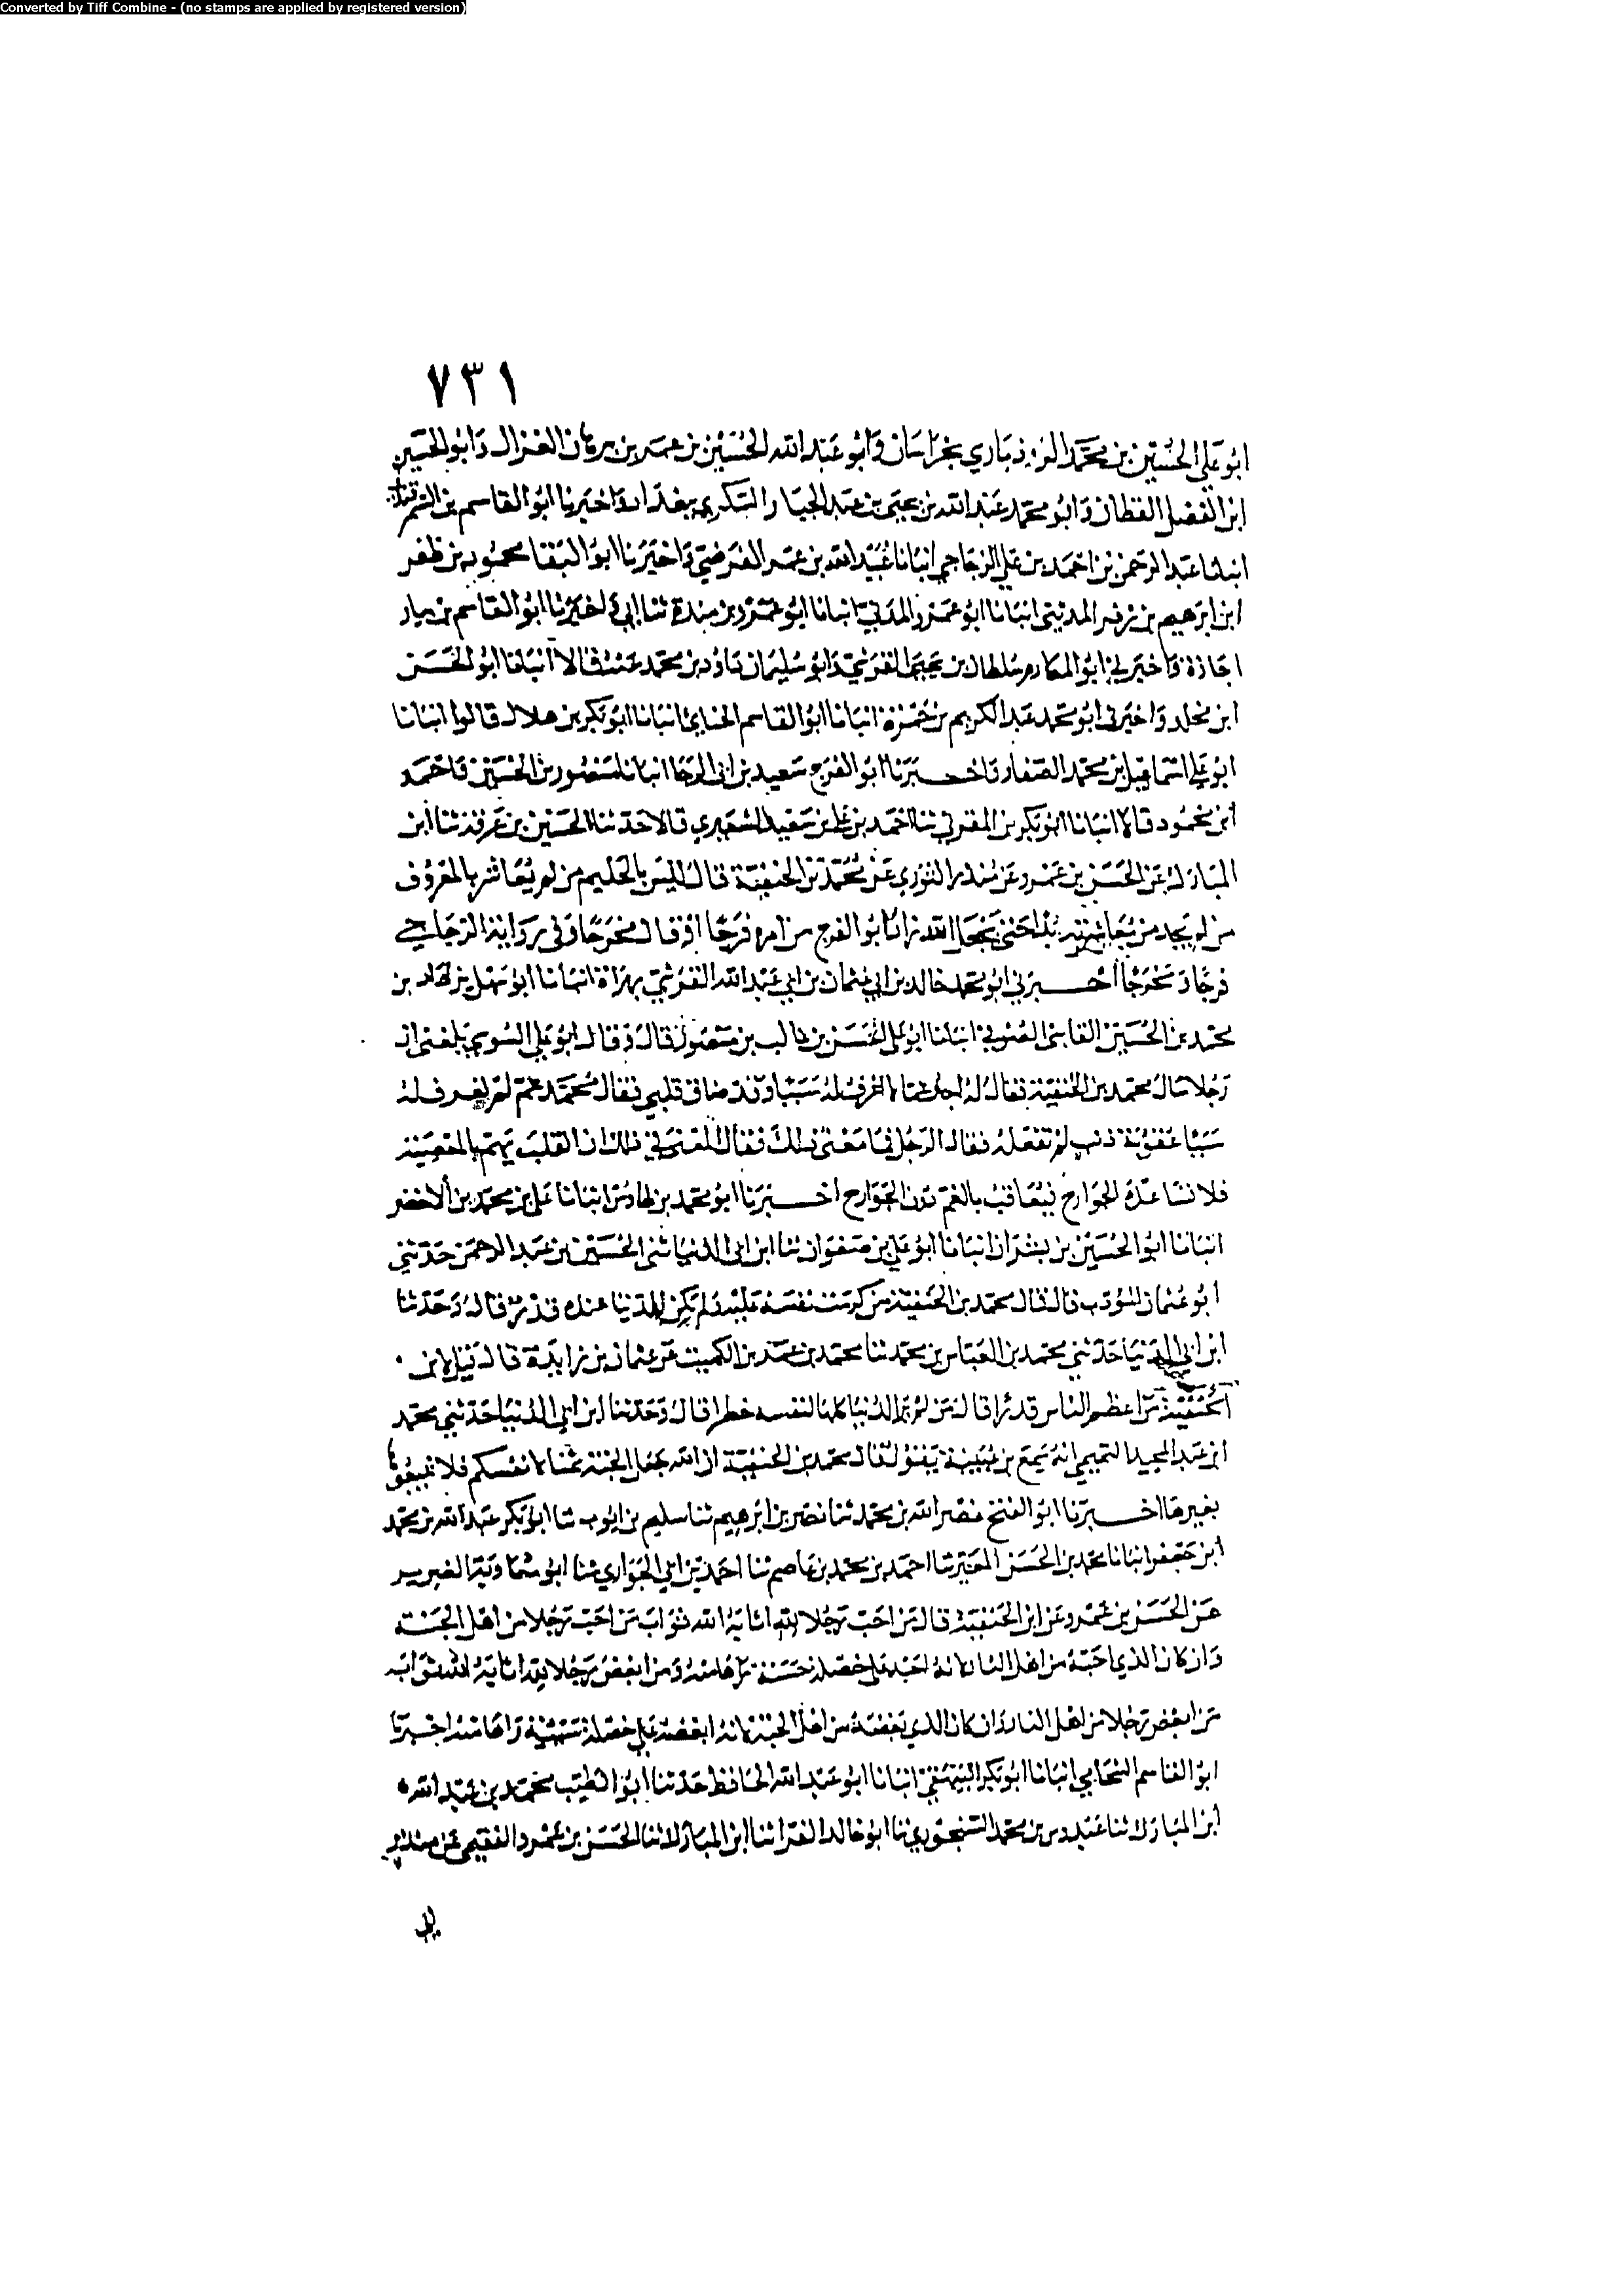 Converted by Tiff Combine - (no stamps are applied by registered version)
٧٣١
ابو علي الحسين بن محمد الروذباري بخراسان وابو عبد الله الحسين بن عمر بن برهان الغزال وابو الحسين
ابن الفضل القطان وابو محمد عبد الله بن يحيى بن عبد الجبار السكري ببغداد واخبرنا ابو القاسم بن السمرقندي
انبانا عبد الرحمن بن احمد بن علي الزجاجي انبانا عبيد الله بن عمر الفرضي واخبرنا ابو البقا محمود بن ظفر
ابن ابرهيم بن المديني انبانا ابو عمرو المدني انبانا ابو عمرو بن مندة ثنا ابي واخبرنا ابو القاسم بن بيان
اجازة واخبرني ابو المكارم سلطان بن يحيى القرشي وابو سليمان داود بن محمد عنه قالا انبانا ابو الحسن
ابن مخلد واخبرني ابو محمد عبد الكريم بن حمزة انبانا ابو القاسم الحنائي انبانا ابو بكر بن هلال قالوا انبانا
ابو علي اسماعيل بن محمد الصفار واخبرنا ابو الفرج سعيد بن ابي الرجا انبانا منصور بن الحسين واحمد
ابن محمود قالا انبانا ابو بكر بن المقرئ ثنا احمد بن علي بن سعيد الشعيري قالا حدثنا الحسين بن عرفة ثنا ابن
المبارك عن الحسن بن عمرو عن منذر الثوري عن محمد بن الحنفية قال ليس بالحليم من لم يعاشر بالمعروف
من لم يجد من معاشرته بدا حتى يجعل الله زاد ابو الفرج من امره فرجا او قال مخرجا وفي رواية الزجاجي
فرجا و مخرجا اخبرني ابو محمد خالد بن ابي عثمان بن ابي عبد الله القرشي بهراة انبانا ابو سهل بن بن
محمد بن الحسين الصوفي انبانا ابو علي الحسن بن غالب بن منصور قال وقال ابو علي بلغني ان
رجلا سال محمد بن الحنفية فقال له اجد غما لا اعرف له سببا وقد ضاق قلبي فقال محمد غم لم تعرف له
سببا عقوبة ذنب لم تفعله فقال الرجل فما معنى ذلك فقال المعنى في ذلك ان القلب يهم بالمعصية
فلا تساعده الجوارح فيعاقب بالغم دون الجوارح اخبرنا ابو محمد بن طاوس انبانا علي بن محمد بن الاخضر
انبانا ابو الحسين بن بشران انبانا ابو علي بن صفوان ثنا ابن ابي الدنيا ثنى الحسين بن عبد الرحمن حدثني
ابو عثمان المؤدب قال قال محمد بن الحنفية من كرمت نفسه عليه لم يكن للدنيا عنده قدر قال وحدثنا
ابن ابي الدنيا حدثني محمد بن العباس بن محمد ثنا محمد بن عمر بن الكميت عن عثمان بن زايدة قال قيل لابن
الحنفية من اعظم الناس قدرا قال من لم ير الدنيا كلها لنفسه خطرا قال وحدثنا ابن ابي الدنيا حدثني محمد
ابن عبد المجيد التميمي انه سمع بن عيينة يقول قال محمد بن الحنفية ان الله جعل الجنة ثمنا لانفسكم فلا تبيعوها
بغيرها اخبرنا ابو الفتح نصر الله بن محمد ثنا نصر بن ابرهيم ثنا سليم بن ايوب ثنا ابو بكر عبد الله بن محمد
ابن جعفر انبانا محمد بن الحسن ثنا احمد بن محمد بن عاصم ثنا احمد بن ابي الحواري ثنا ابو معاوية الضرير
عن الحسن بن عمرو عن ابن الحنفية قال من احب رجلا لله اثابه الله ثواب من احب رجلا من اهل الجنة
وان كان الذي احبه من اهل النار لانه احبه على خصلة حسنة راها منه ومن ابغض رجلا لله اثابه الله ثواب
من ابغض رجلا من اهل النار وان كان الذي يبغضه من اهل الجنة لانه ابغضه على خصلة سيئة راها منه اخبرنا
ابو القاسم الشحامي انبانا ابو بكر البيهقي انبانا ابو عبد الله الحافظ حدثنا ابو الطيب محمد بن عبد الله
ابن المبارك ثنا عبدوس بن محمد ثنا ابو خالد الفرا ثنا ابن المبارك ثنا الحسن بن عمرو الفقيمي عن منذر